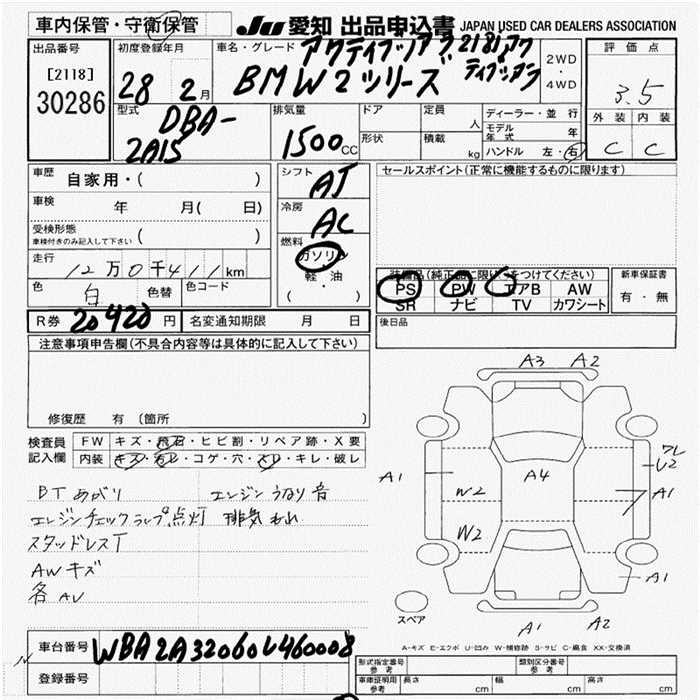 車内保管・守衛保管
JU 愛知 出品申込書 JAPAN USED CAR DEALERS ASSOCIATION
出品番号
[2118]
30286
初度登録年月
28 2月
車名・グレード
アクティブツアラ 218iアク
BMW2シリーズ ティブツアラ
2WD
・
4WD
評価点
3.5
外装 内装
C C
型式
DBA-
2A15
排気量
1500cc
ドア
形状
定員
人
積載
kg
ディーラー・並行
モデル
年式 年
ハンドル 左・右
車歴
自家用・( )
車検
年 月( 日)
受検形態
車検付きのみ記入して下さい ( )
走行
12万0千411km
色 白 色替 色コード
R券 20420円 名変通知期限 月 日
シフト
AT
冷房
AC
燃料
ガソリン
軽・油
( ・ )
セールスポイント(正常に機能するものに限ります)
装備品(純正品に限り○をつけてください)
PS PW エアB AW
SR ナビ TV カワシート
新車保証書
有・無
後日品
注意事項申告欄(不具合内容等は具体的に記入して下さい)
修復歴 有 (箇所 )
検査員
記入欄
FW キズ・飛石・ヒビ割・リペア跡・X要
内装 キズ・汚レ・コゲ・穴・スレ・キレ・破レ
BTあがり エンジンうなり音
エンジンチェックランプ点灯 排気もれ
スタッドレスT
AWキズ
各AU
A3 A2
A1
W2
W2
A4
ワレ
U2
A1
A1
A1 A2
スペア
A-キズ E-エクボ U-凹み W-補修跡 S-サビ C-腐食 XX-交換済
車台番号 WBA2A32060V460008
登録番号
型式指定番号
参考
類別区分番号
参考
車庫証明用
参考
長さ cm 幅 cm 高さ cm